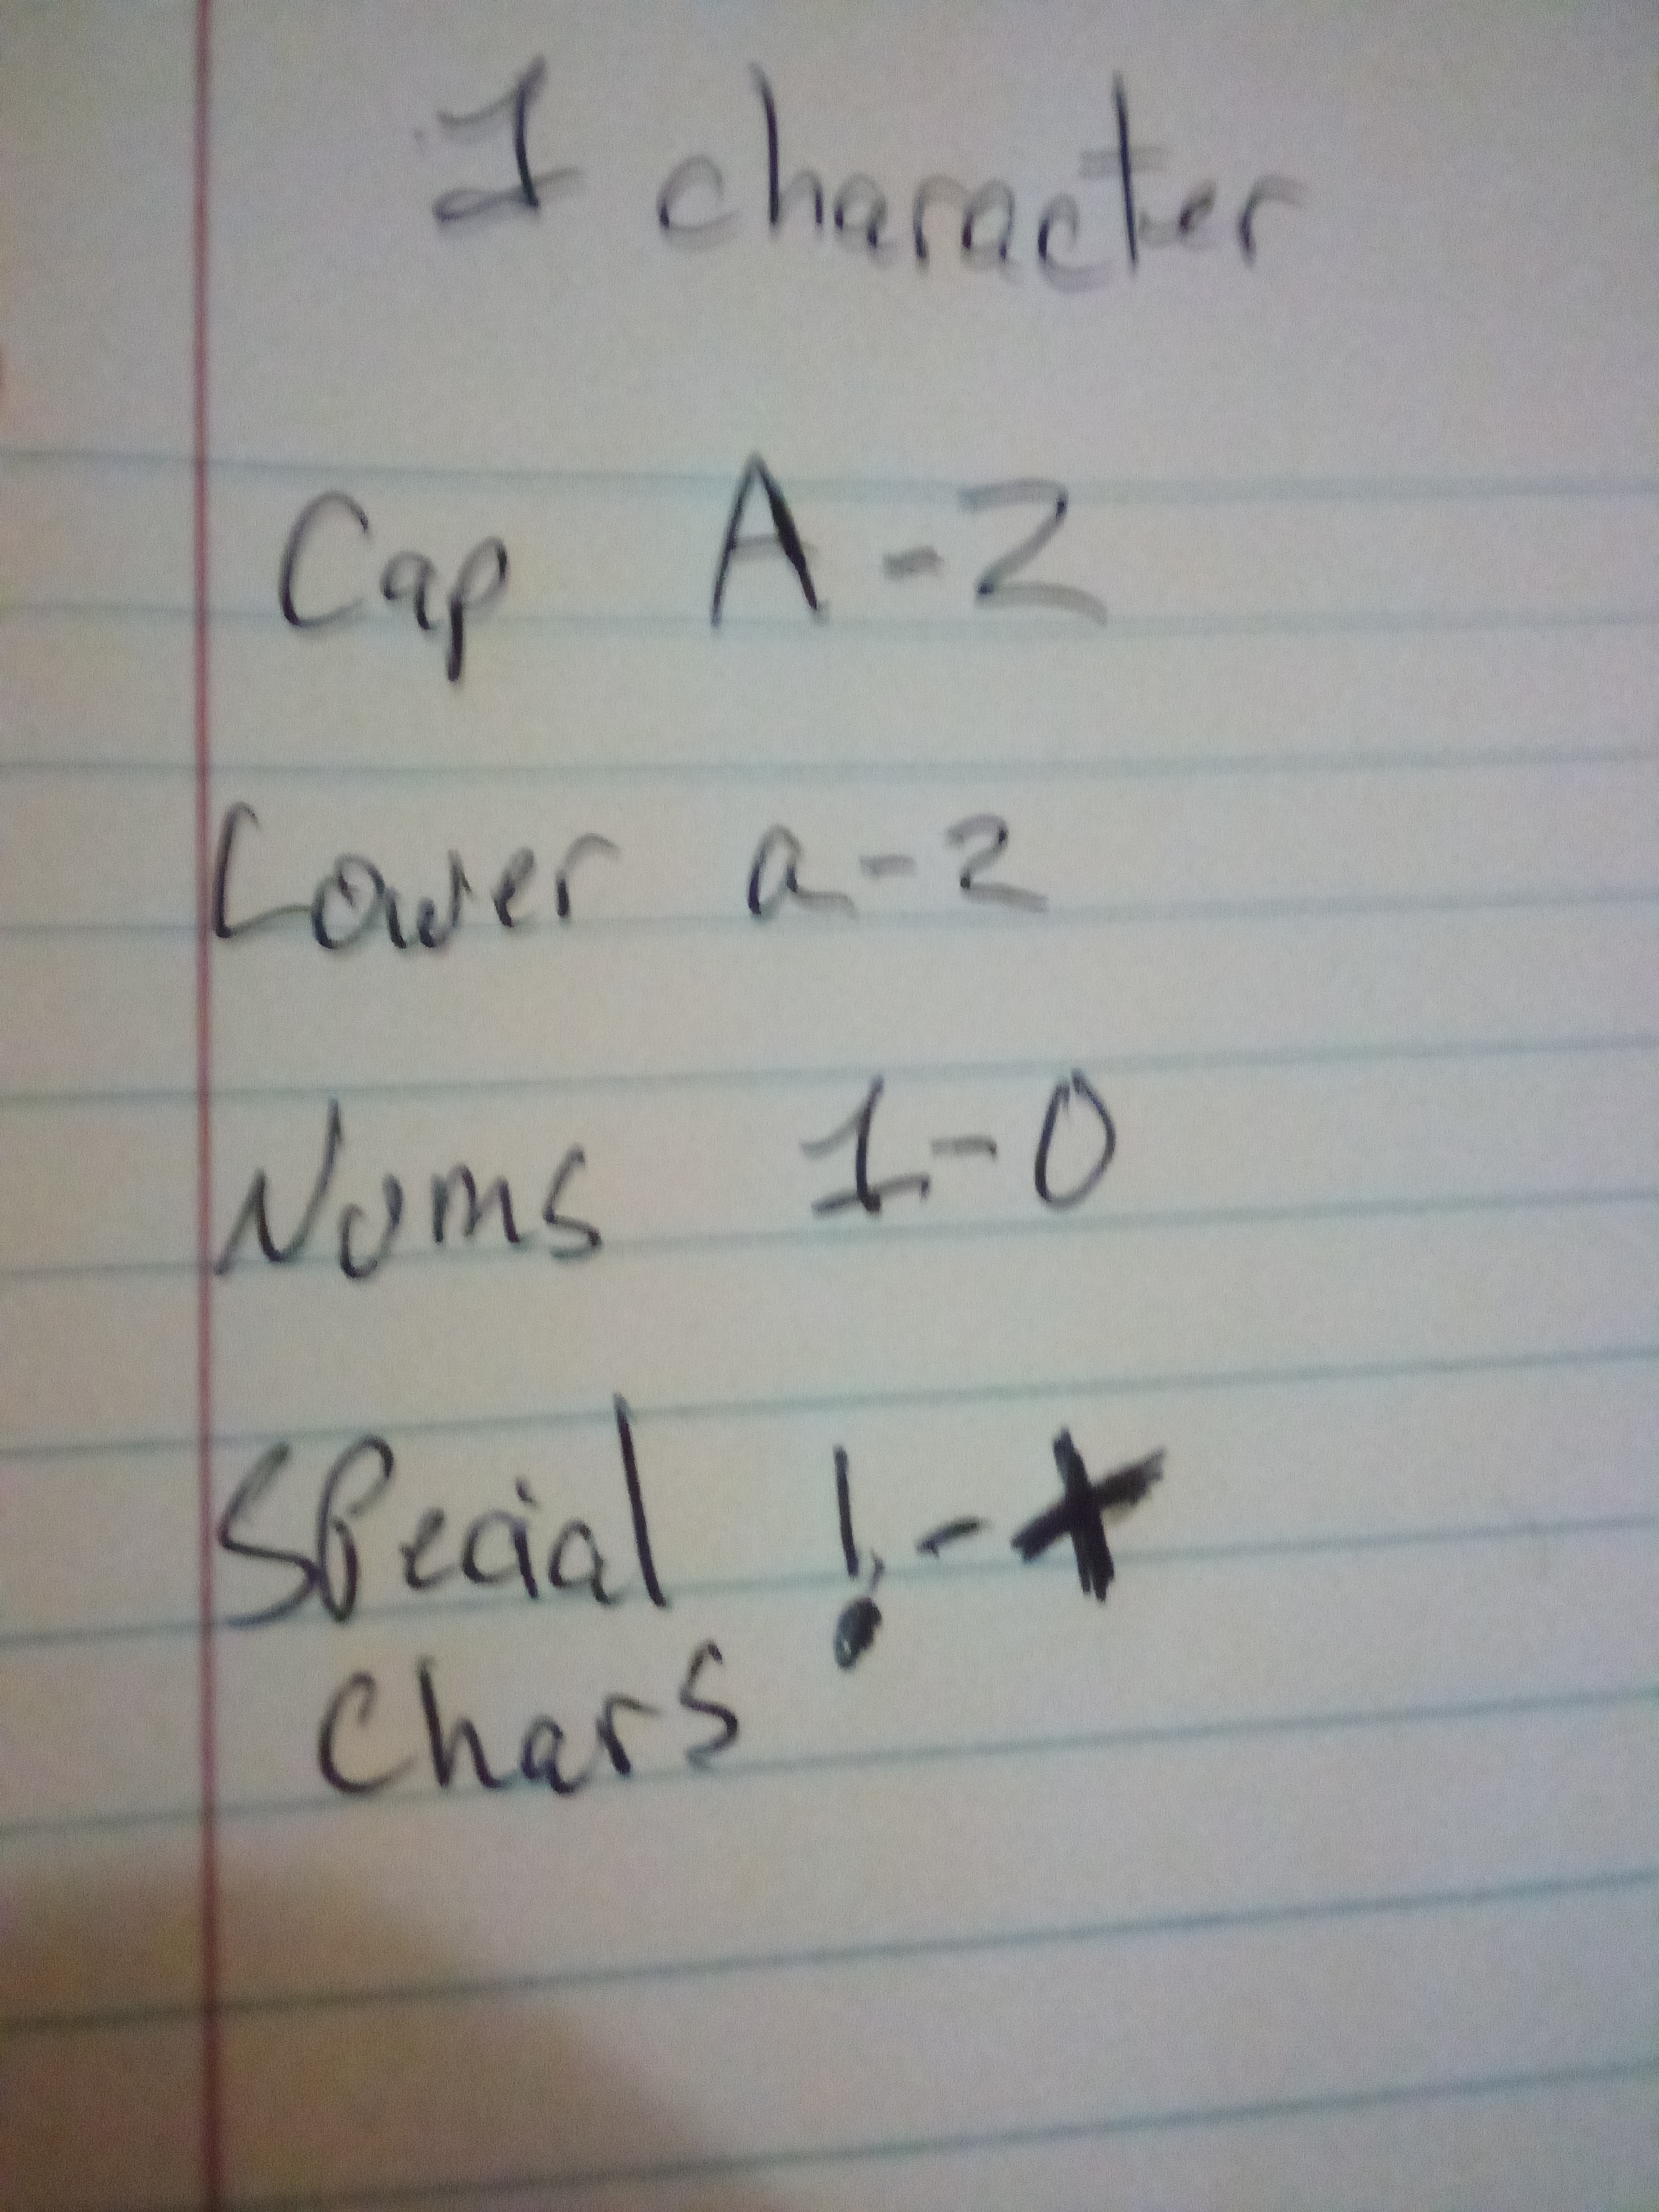 1 character
Cap A-Z
Lower a-z
Nums 1-0
Special !-+
Chars